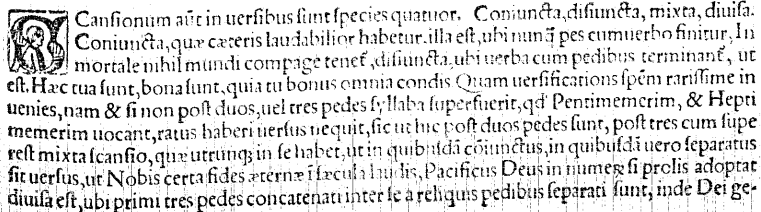 Cansionum aũt in uersibus sunt species quatuor. Coniuncta, disiuncta, mixta, diuisa.
Coniuncta, quæ cæteris laudabilior habetur. illa est, ubi nunq̃ pes cum uerbo finitur, In
mortale nihil mundi compage tenet᷑, disiuncta, ubi uerba cum pedibus terminant᷑, ut
est. Hæc tua sunt, bona sunt, quia tu bonus omnia condis Quam uersificationis spẽm rarissime in
uenies, nam & si non post duos, uel tres pedes syllaba superfuerit, qd̓ Pentimemerim, & Hepti
memerim uocant, ratus haberi uersus nequit, sic ut hic post duos pedes sunt, post tres cum supe
rest mixta scansio, quæ utrunq; in se habet, ut in quibusdã cõiunctus, in quibusdã uero separatus
sit uersus, ut Nobis certa fides æternæ ĩ sæcula laudis, Pacificus Deus in numerũ si prolis adoptat
diuisa est, ubi primi tres pedes concatenati inter se a reliquis pedibus separati sunt, inde Dei ge-